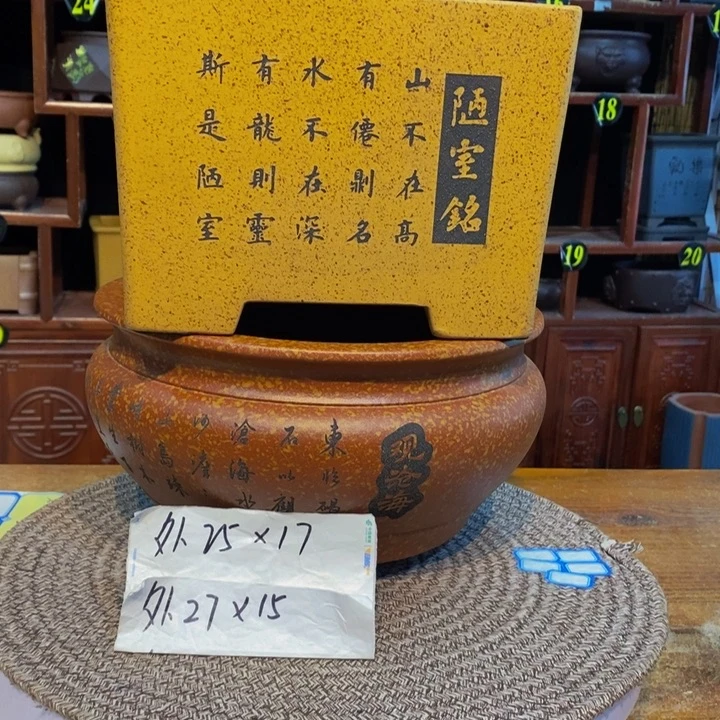 陋室銘
山不在高
有僊則名
水不在深
有龍則靈
斯是陋室
观沧海
東臨碣
石以觀
滄海水
外25×17
外27×15
24
18
19
20